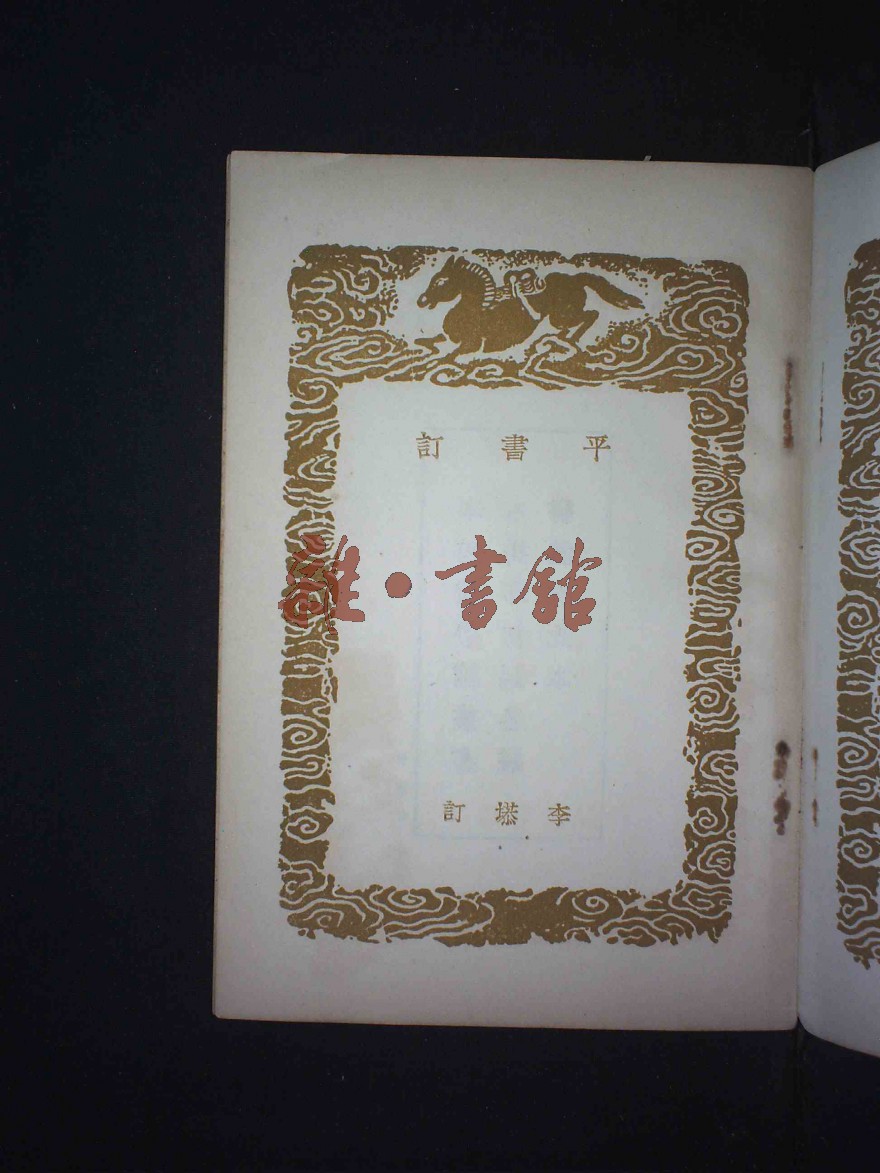 平書訂
雜·書館
李塨訂